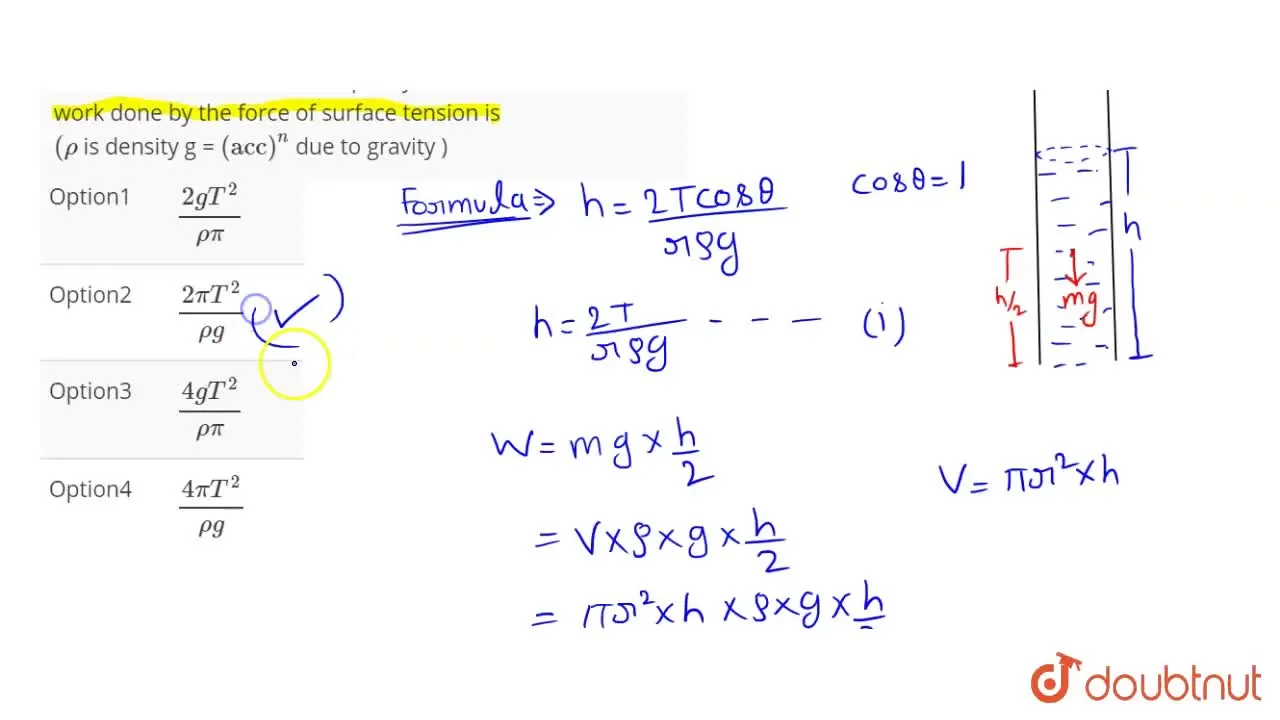 work done by the force of surface tension is
(ρ is density g = (acc)ⁿ due to gravity )
Option1 2gT² / ρπ
Option2 2πT² / ρg (✓)
Option3 4gT² / ρπ
Option4 4πT² / ρg
Formula ⇒ h = 2Tcosθ / rρg
cosθ = 1
h = 2T / rρg - - - - (i)
W = mg × h/2
V = πr² × h
= V × ρ × g × h/2
= πr² × h × ρ × g × h/2
h
T
h/2
mg
doubtnut